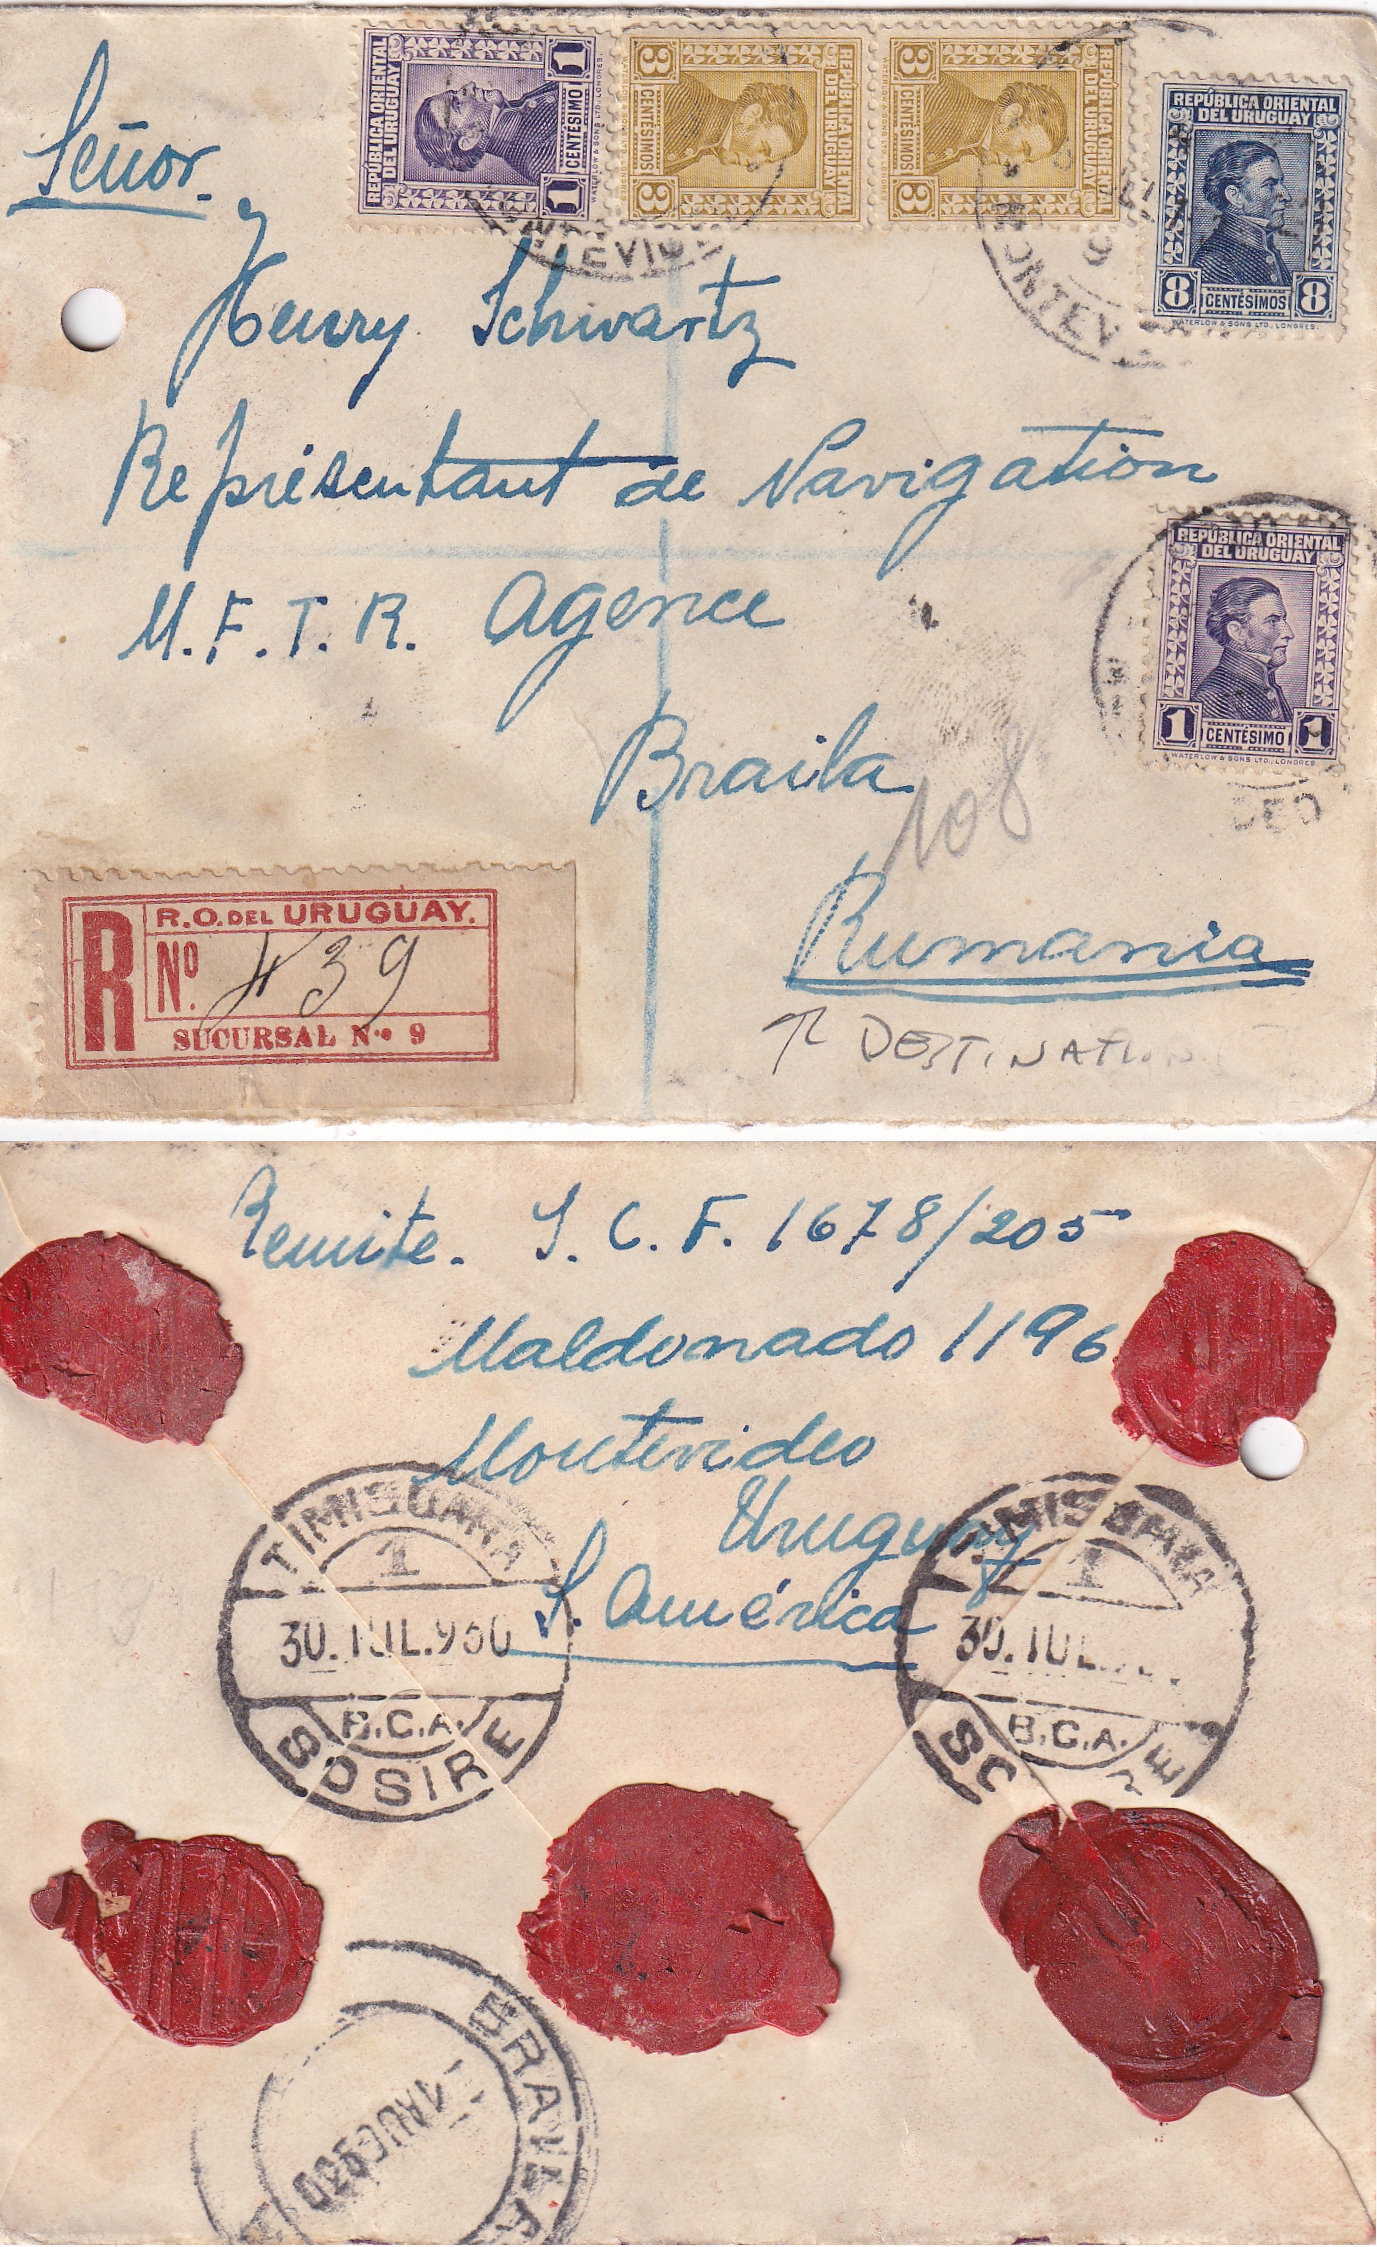 REPÚBLICA ORIENTAL
DEL URUGUAY
1 CENTÉSIMO 1
WATERLOW & SONS LTD., LONDRES.
REPÚBLICA ORIENTAL
DEL URUGUAY
3 CENTÉSIMOS 3
REPÚBLICA ORIENTAL
DEL URUGUAY
3 CENTÉSIMOS 3
REPÚBLICA ORIENTAL
DEL URUGUAY
8 CENTÉSIMOS 8
WATERLOW & SONS LTD., LONDRES.
Señor.
Henry Schwartz
Représentant de Navigation
M.F.T.R. Agence
Braila
108
Rumania
DESTINATION
REPÚBLICA ORIENTAL
DEL URUGUAY
1 CENTÉSIMO 1
WATERLOW & SONS LTD., LONDRES.
R
R.O. DEL URUGUAY.
Nº. 439
SUCURSAL N.º 9
Remite. S. C. F. 1678/205
Maldonado 1196
Montevideo
Uruguay
S. América
TIMISOARA
1
30.IUL.930
B.C.A.
SOSIRE
1
30.IUL.
B.C.A.
BRAILA
1 AUG 930